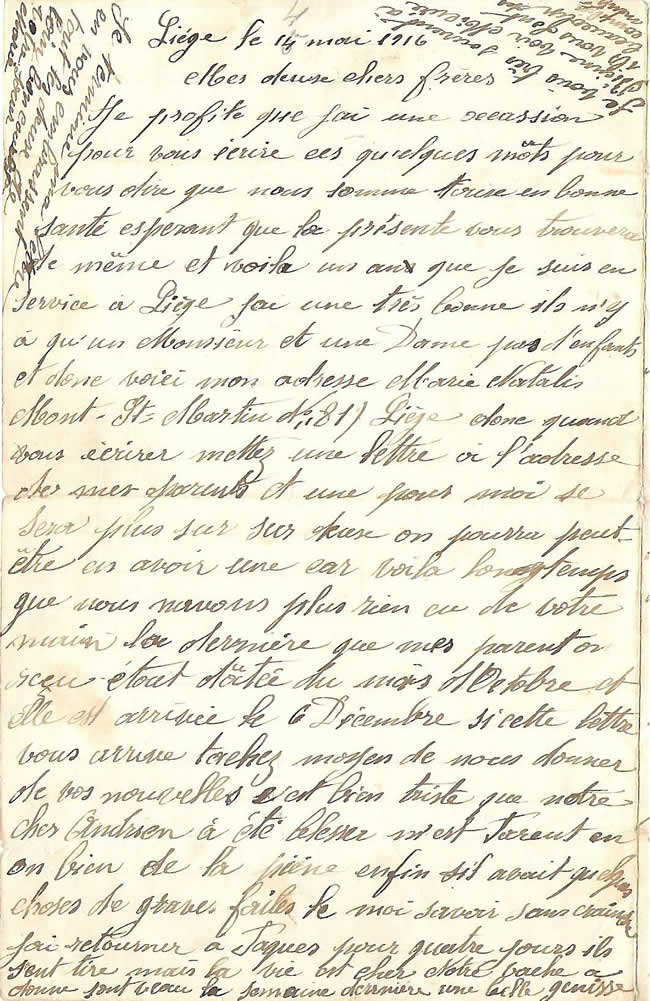 4
Liége le 14 mai 1916
Mes deuse chers frères
Je profite que jai une occassion
pour vous écrire ces quelques môts pour
vous dire que nous somme touse en bonne
santé esperant que la présente vous trouvera
de même et voila un an que je suis en
service à Liége jai une trés bonne ils n'y
à qu'un Monsieur et une Dame pas d'enfants
et donc voici mon adresse Marie Natalis
Mont-St-Martin No 81) Liége donc quand
vous écrirer mettez une lettre a l'adresse
de mes parents et une pour moi se
sera plus sur sur deuse on pourra peut-
être en avoir une car voila longtemps
que nous navons plus rien eu de votre
main la dernière que mes parent on
reçu était dâtée du môis d'Octobre et
elle est arrivée le 6 Décembre si cette lettre
vous arrive tachez moyen de nous donner
de vos nouvelles c'est bien triste que notre
cher Andrien à été blesser nest Parent en
on bien de la peine enfin sil avait quelques
choses de graves faites le moi savoir sans crainte
jai retourner a Jaques pour quatre jours ils
sont tire mais la vie est cher Notre vache a
donne sont veau la semaine dernière une belle genisse
Je termine ma lettre
en vous embrassant
tout les deuse de
loin bon courage